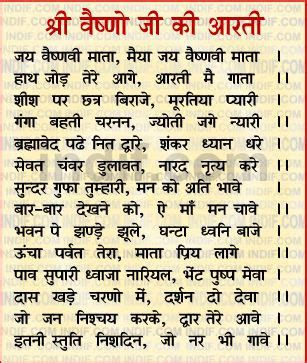 श्री वैष्णो जी की आरती
जय वैष्णवी माता, मैया जय वैष्णवी माता
हाथ जोड़ तेरे आगे, आरती मै गाता ।।
शीश पर छत्र बिराजे, मूरतिया प्यारी ।।
गंगा बहती चरनन, ज्योती जगे न्यारी ।।
ब्रह्मावेद पढे नित द्वारे, शंकर ध्यान धरे
सेवत चंवर डुलावत, नारद नृत्य करे ।।
सुन्दर गुफा तुम्हारी, मन को अति भावे ।
बार-बार देखने को, ऐ माँ मन चावे ।।
भवन पे झण्डे झूले, घन्टा ध्वनि बाजे ।
ऊंचा पर्वत तेरा, माता प्रिय लागे ।।
पाव सुपारी ध्वाजा नारियल, भेंट पुष्प मेवा ।
दास खड़े चरणो में, दर्शन दो देवा ।।
जो जन निश्चय करके, द्वार तेरे आवे ।
इतनी स्तुति निशदिन, जो नर भी गावे ।।
indif.com